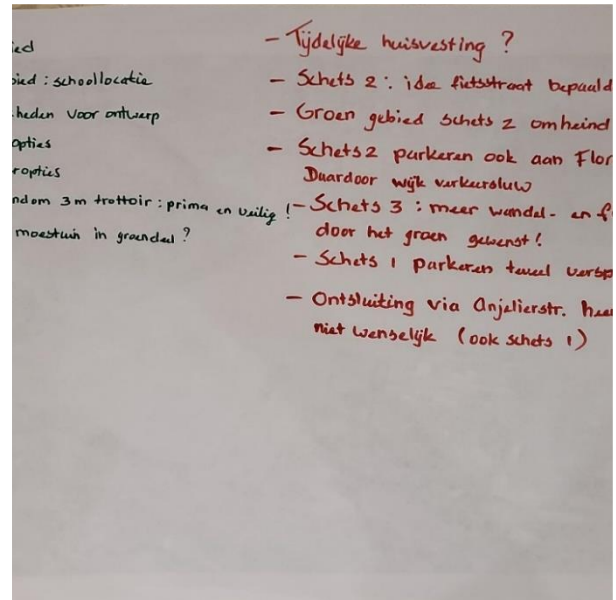 ied
bied : schoollocatie
heden voor ontwerp
opties
ropties
ndom 3 m trottoir : prima en veilig !
moestuin in groendeel ?
- Tijdelijke huisvesting ?
- Schets 2 : idee fietsstraat bepaald
- Groen gebied schets 2 omheind
- Schets 2 parkeren ook aan Flor
Daardoor wijk verkeersluw
- Schets 3 : meer wandel- en f
door het groen gewenst !
- Schets 1 parkeren teveel versp
- Ontsluiting via Anjelierstr. hee
niet wenselijk (ook schets 1)